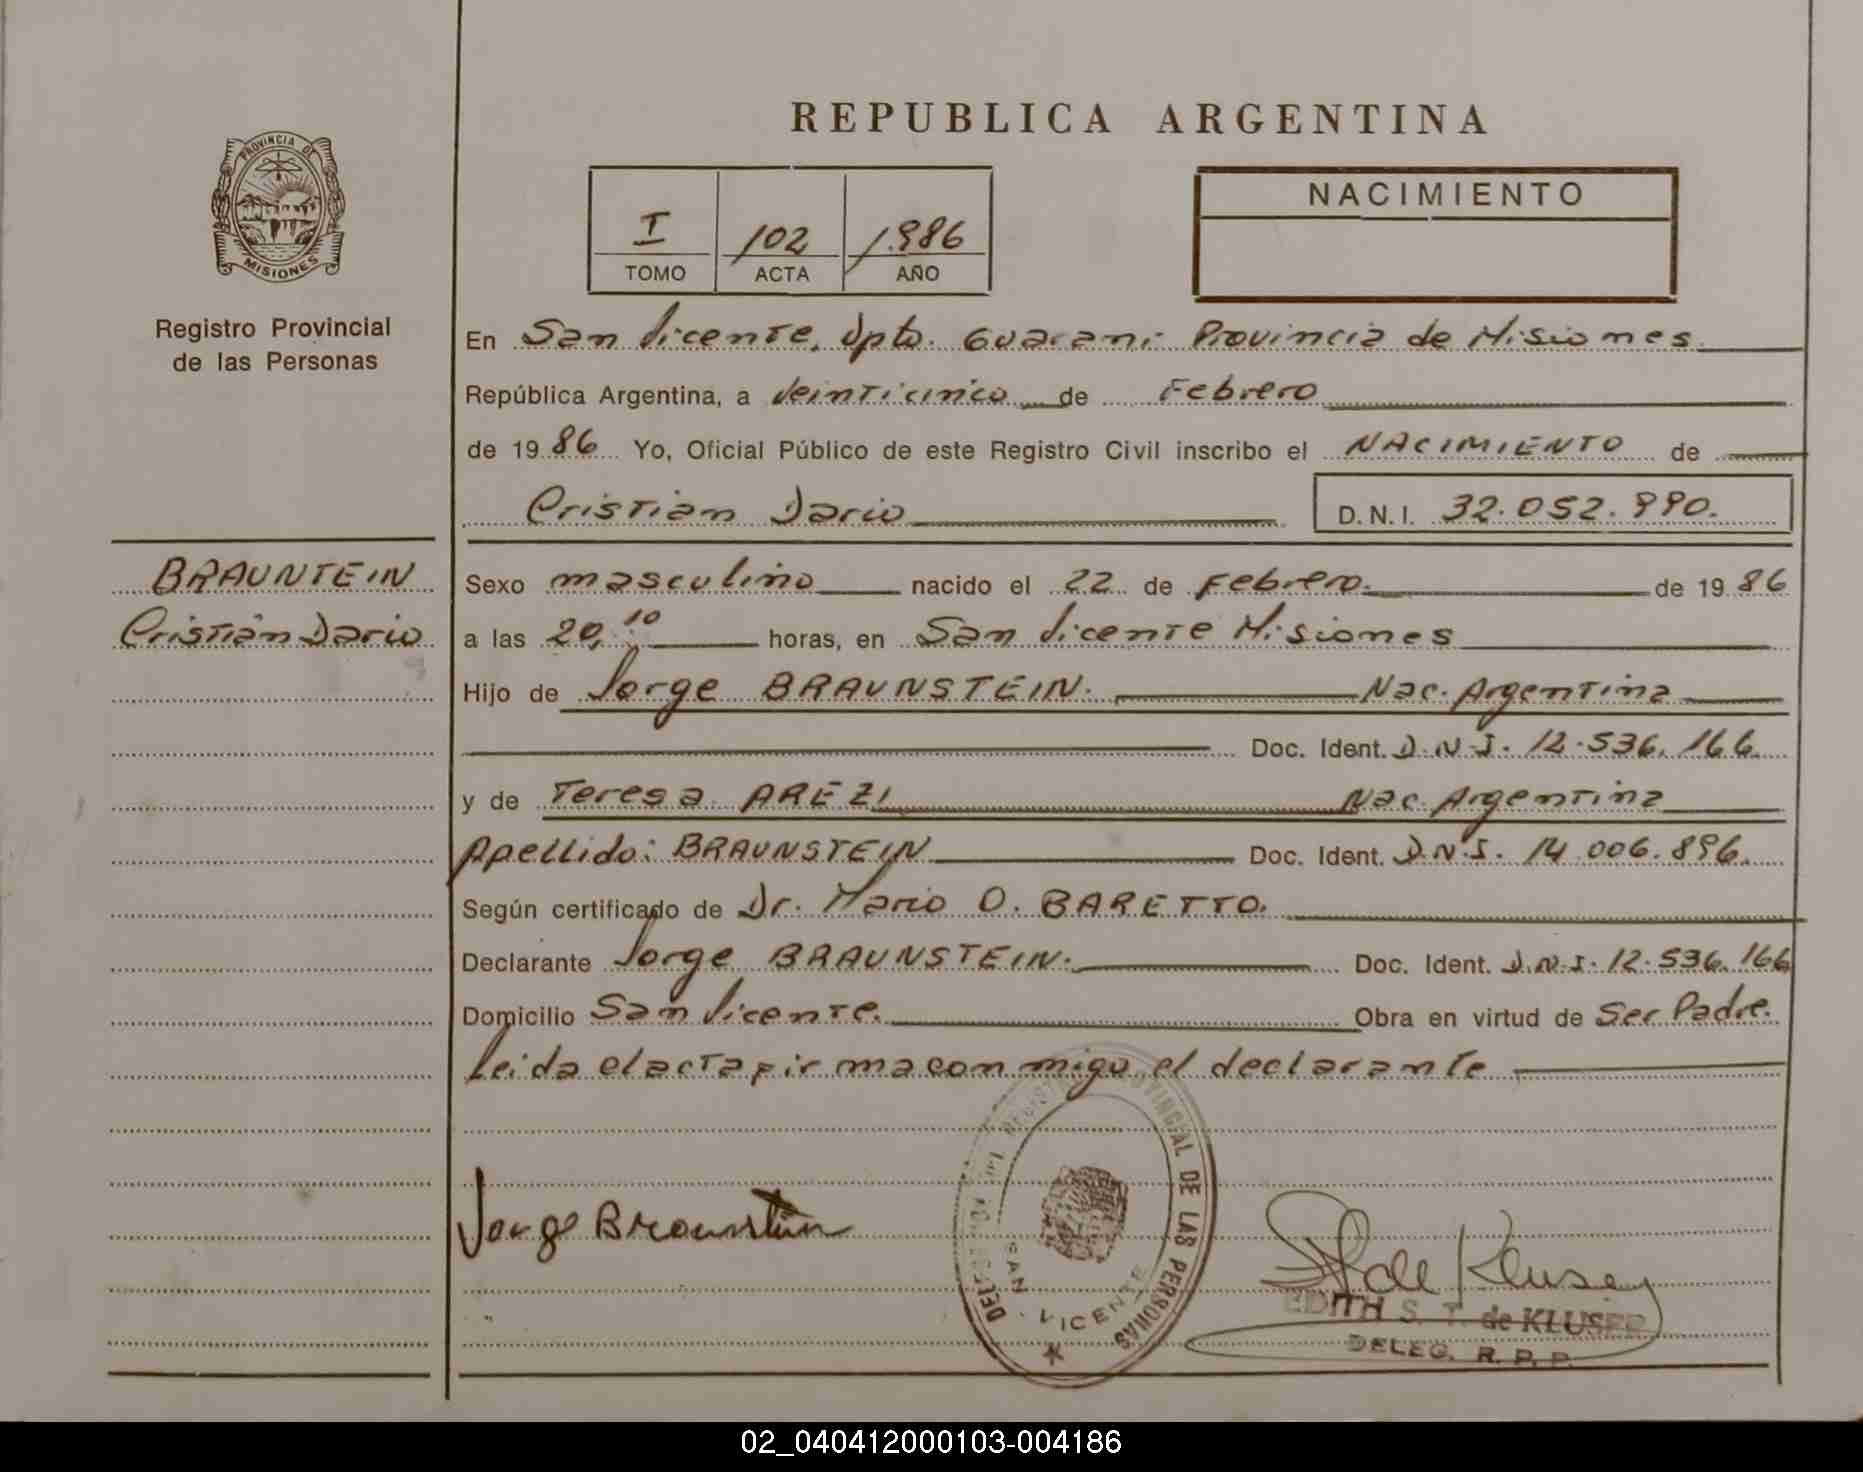 REPUBLICA ARGENTINA
PROVINCIA DE
MISIONES
Registro Provincial
de las Personas
I 102 1.986
TOMO ACTA AÑO
NACIMIENTO
En San Vicente, Dpto. Guarani Provincia de Misiones
República Argentina, a Veinticinico de Febrero
de 19 86 Yo, Oficial Público de este Registro Civil inscribo el NACIMIENTO de
Cristian Dario D.N.I. 32.052.990.
BRAUNTEIN
Cristian Dario
Sexo masculino nacido el 22 de Febrero. de 19 86
a las 20,10 horas, en San Vicente Misiones
Hijo de Jorge BRAUNSTEIN. Nac. Argentina
Doc. Ident. D.N.I. 12.536.166
y de Teresa AREZI Nac. Argentina
Apellido: BRAUNSTEIN Doc. Ident. D.N.I. 14.006.896.
Según certificado de Dr. Mario O. BARETTO.
Declarante Jorge BRAUNSTEIN. Doc. Ident. D.N.I. 12.536.166
Domicilio San Vicente. Obra en virtud de Ser Padre.
Leida el acta firma con migo el declarante
Jorge Braunstein
REGISTRO PROVINCIAL DE LAS PERSONAS
SAN VICENTE
de Kluser
EDITH S. T. de KLUSER
DELEG. R. P. P.
02_040412000103-004186